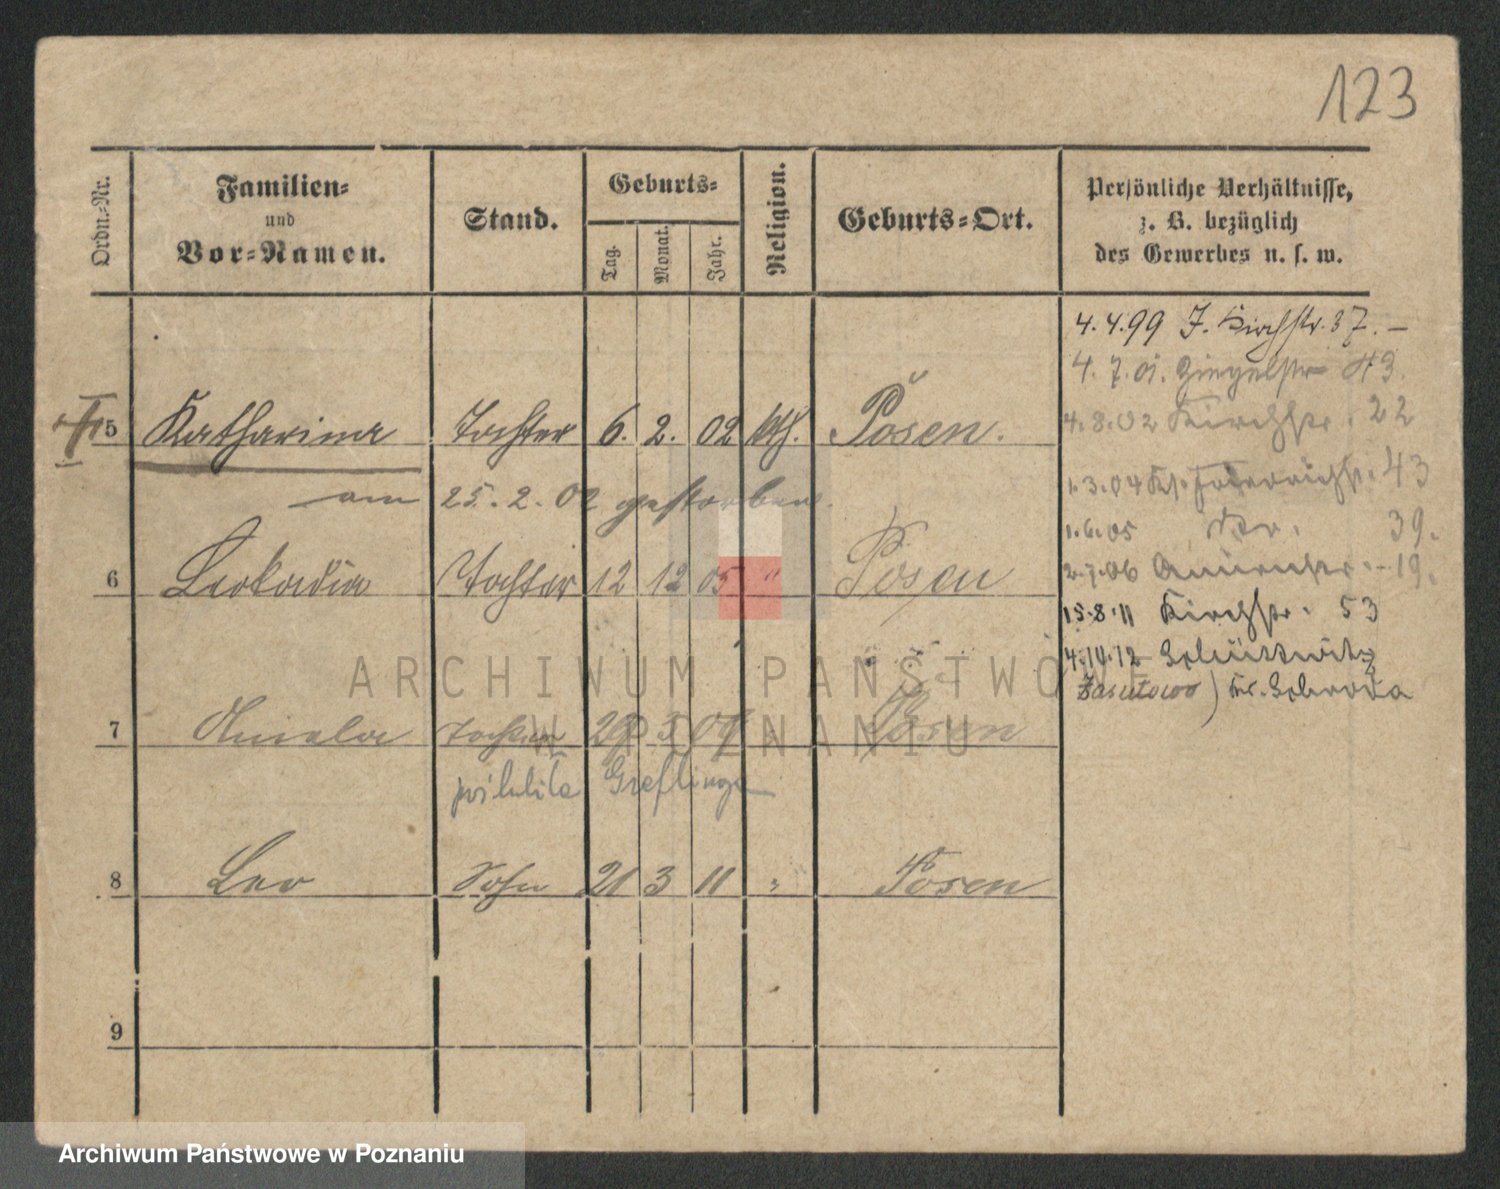 123
Ordn.-Nr.
Familien-
und
Vor-Namen.
Stand.
Geburts-
Tag.
Monat.
Jahr.
Religion.
Geburts-Ort.
Persönliche Verhältnisse,
z. B. bezüglich
des Gewerbes u. s. w.
4.4.99 J. Kirchstr. 37. –
4. 7. 01. Ziegelstr 43.
4.8.02 Kirchstr. 22
1.3.04 43
1.6.05 39.
2.7.06 19.
15.8.11 Kirchstr. 53
4.10.12
Zasutowo) Kr. Schroda
5 Katharina Tochter 6. 2. 02 kth. Posen.
am 25.2.02 gestorben.
6 Leokadia Tochter 12 12 05 " Posen
7 Aniela Tochter 29 3 09 Posen
Greflinger
8 Leo Sohn 21 3 11 " Posen
9
ARCHIWUM PAŃSTWOWE
W POZNANIU
Archiwum Państwowe w Poznaniu